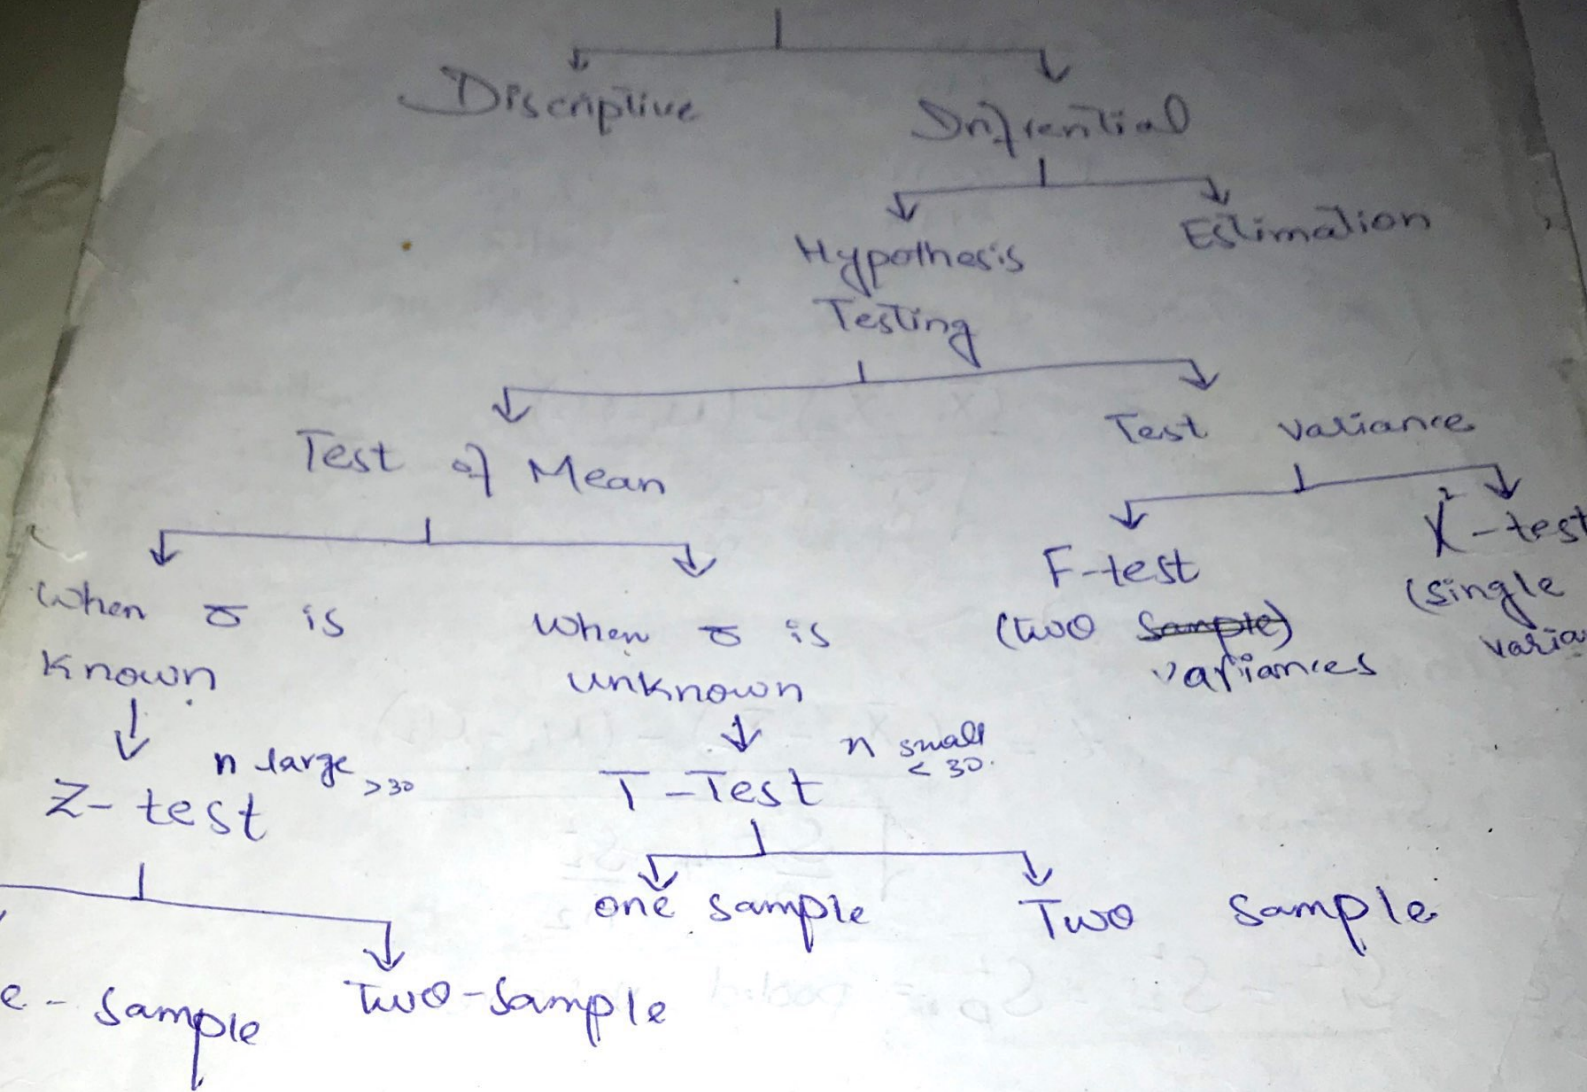 Discriptive
Infrential
Hypothesis
Testing
Estimation
Test of Mean
Test variance
When σ is
known
When σ is
unknown
F-test
(two sample)
variances
χ²-test
(single
varia
Z-test n large >30
T-Test n small < 30.
one sample
Two sample
e-sample
Two-sample